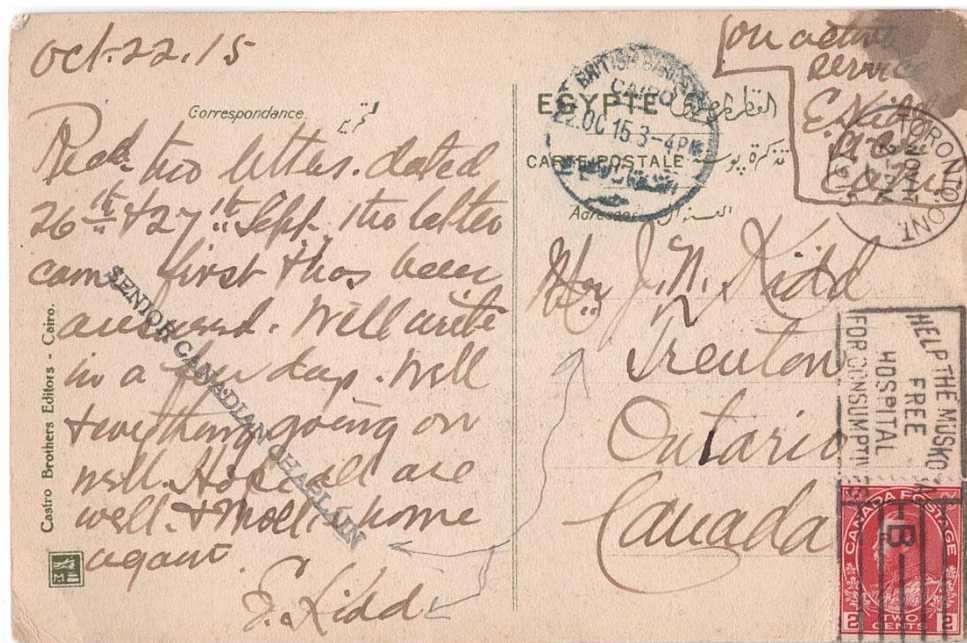 Oct. 22. 15
Correspondance
Recd. two letters. dated
26th & 27th Sept. the latter
came first & has been
answered. Will write
in a few days. Well
& everything going on
well. Hope all are
well. & Moll. home
again.
E. Kidd
SENIOR CANADIAN CHAPLAIN
Castro Brothers Editors - Cairo.
on active
service
E. Kidd
EGYPTE القطر المصري
CARTE POSTALE تذكرة بوستة
Adresse
CAIRO
22 OC 15 3-4PM
TORONTO, ONT.
Mr. J. N. Kidd
Trenton
Ontario
Canada
HELP THE MUSKO
FREE
HOSPITAL
FOR CONSUMPTIVES
CANADA POSTAGE
2 TWO CENTS 2
B